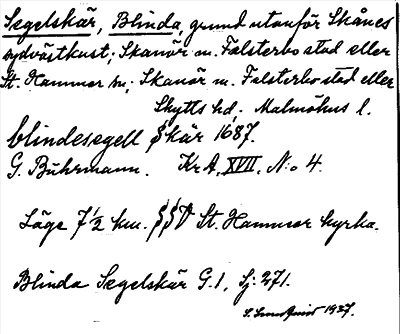 Segelskär, Blinda grund utanför Skånes
sydvästkust; Skanör m. Falsterbo stad eller
St. Hammar sn; Skanör m. Falsterbo stad eller
Skytts hd, Malmöhus l.
blindesegell Skär 1687.
G. Buhrmann. Kr A, XVII, N:o 4.
Läge 7 1/2 km. SSV St. Hammar kyrka.
Blinda Segelskär G. 1, Sj. 271.
1927.